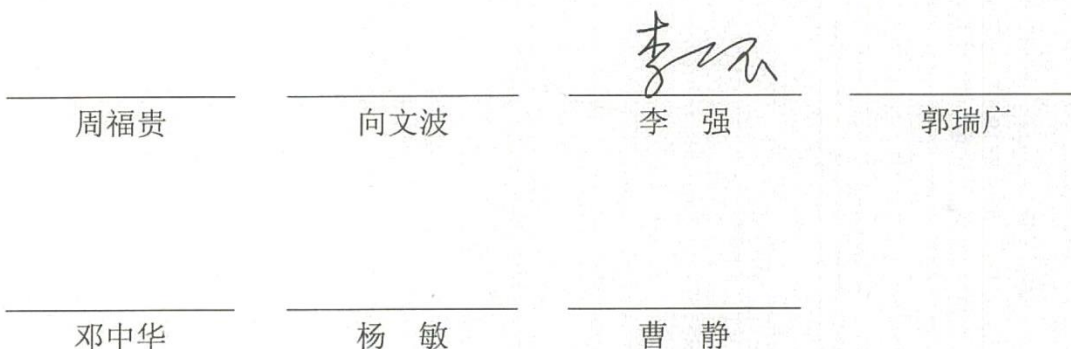 李强
周福贵 向文波 李 强 郭瑞广
邓中华 杨 敏 曹 静